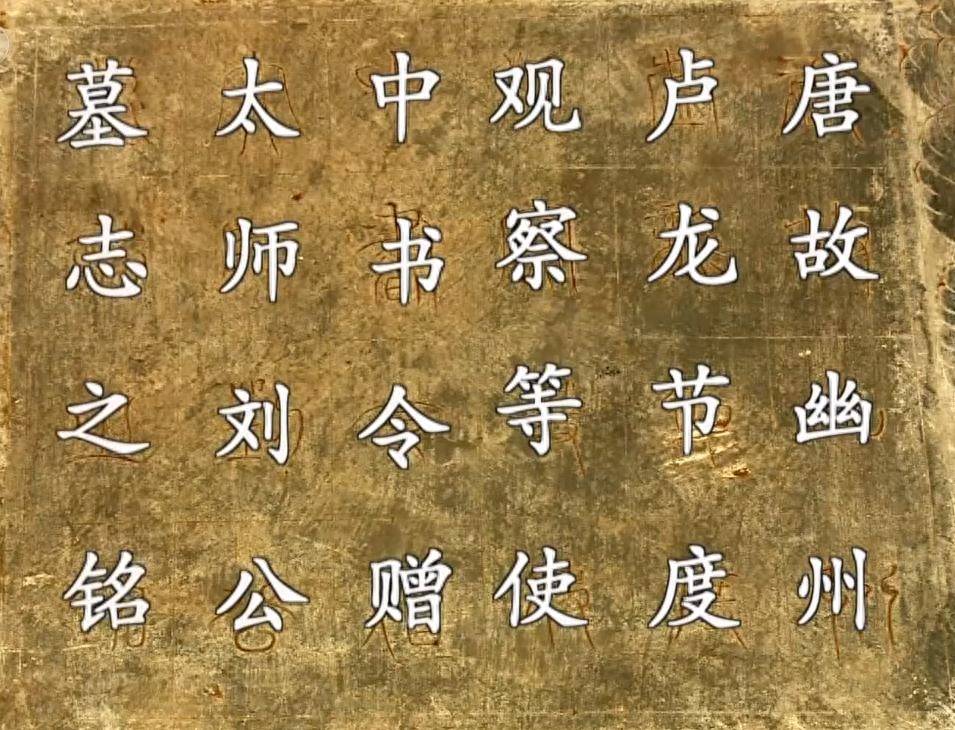 唐故幽州
卢龙节度
观察等使
中书令赠
太师刘公
墓志之铭